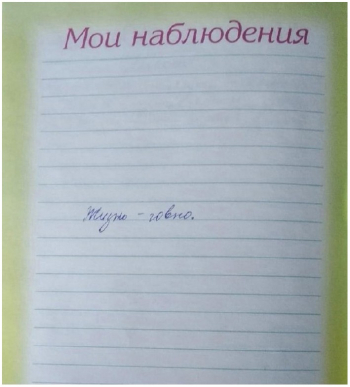 Мои наблюдения
Жизнь - говно.